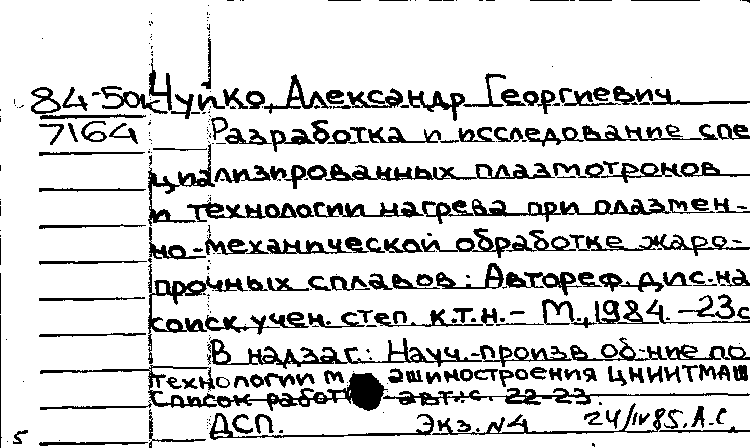 84-50к Чуйко, Александр Георгиевич
7164 Разработка и исследование спе
циализированных плазмотронов
и технологии нагрева при плазмен-
но-механической обработке жаро-
прочных сплавов: Автореф. дис. на
соиск. учен. степ. к.т.н. - М., 1984. - 23с
В надзаг.: Науч.-произв об-ние по
технологии машиностроения ЦНИИТМАШ
Список работ авт.: с. 22-23.
ДСП. Экз. №4 24/IV85. А.С.
5